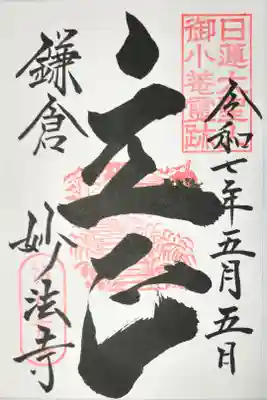 日蓮大聖人
御小菴霊跡
令和七年五月五日
立正
鎌倉
妙法寺